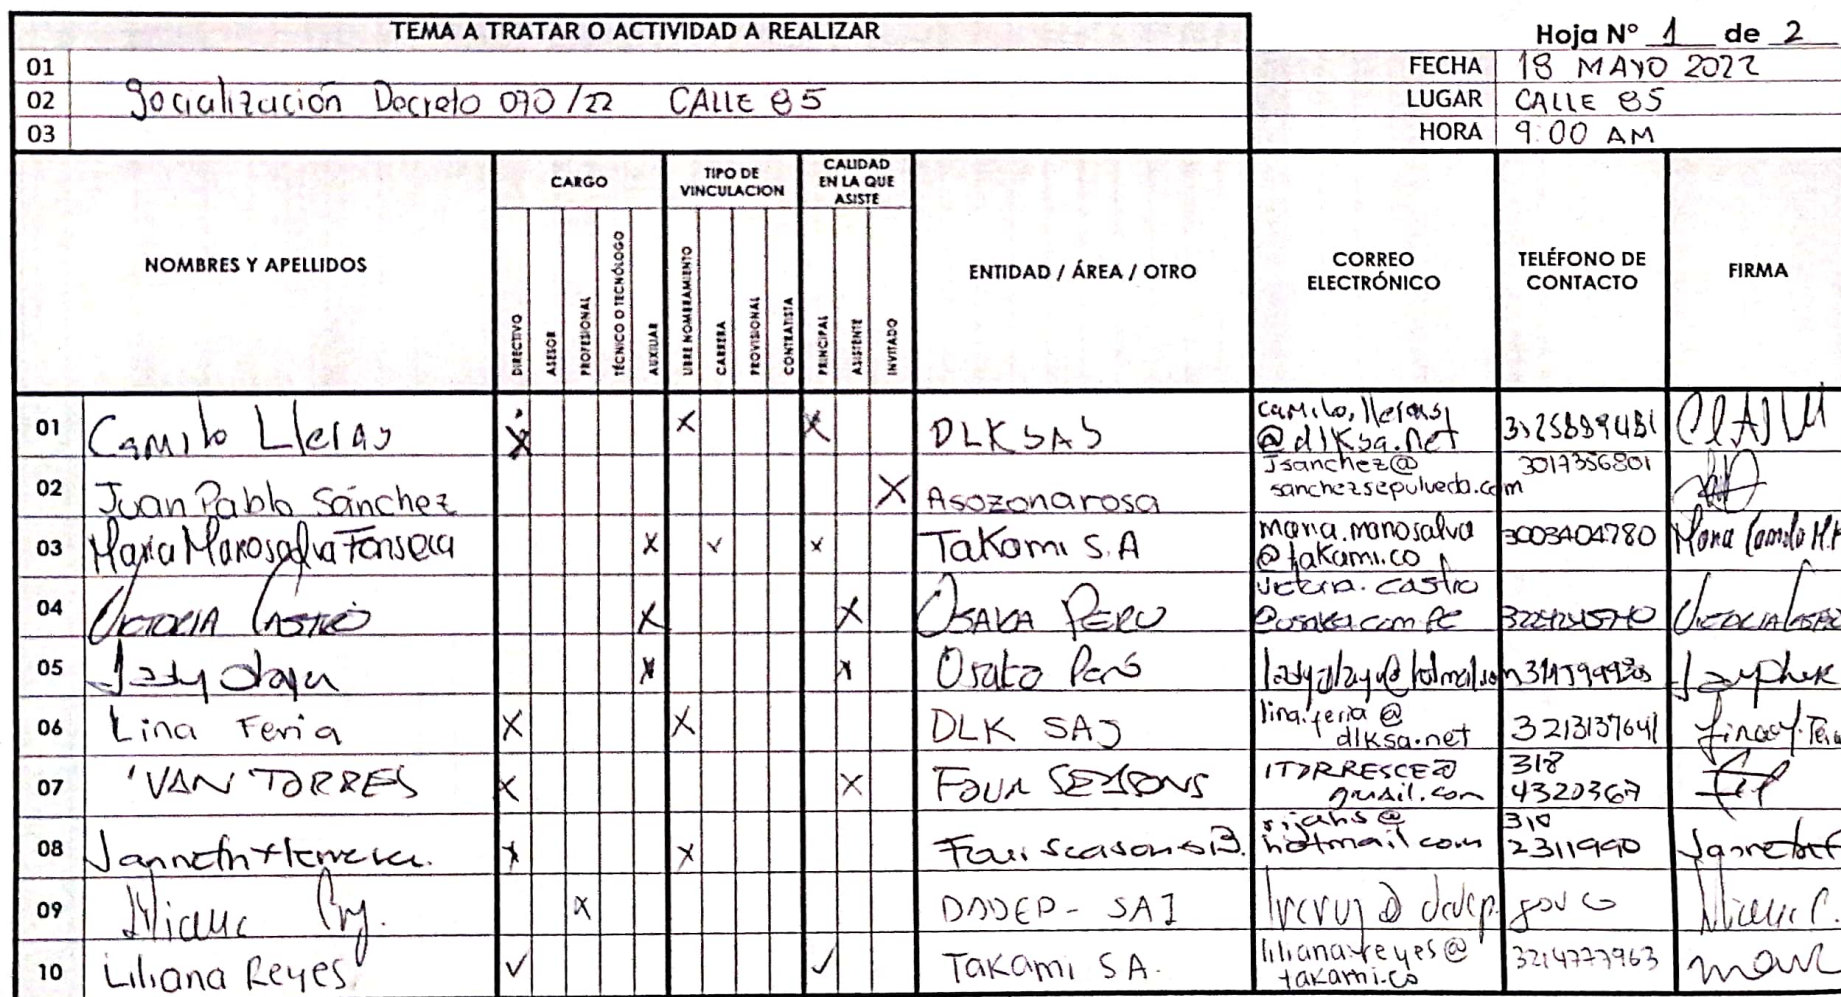 TEMA A TRATAR O ACTIVIDAD A REALIZAR
Hoja N° 1 de 2
01
FECHA 18 MAYO 2022
02 Socialización Decreto 070/22 CALLE 85
LUGAR CALLE 85
03
HORA 9:00 AM
NOMBRES Y APELLIDOS
CARGO
DIRECTIVO
ASESOR
PROFESIONAL
TÉCNICO O TECNÓLOGO
AUXILIAR
TIPO DE
VINCULACION
LIBRE NOMBRAMIENTO
CARRERA
PROVISIONAL
CONTRATISTA
CALIDAD
EN LA QUE
ASISTE
PRINCIPAL
ASISTENTE
INVITADO
ENTIDAD / ÁREA / OTRO
CORREO
ELECTRÓNICO
TELÉFONO DE
CONTACTO
FIRMA
01 Camilo Lleras X X X DLK SAS
camilo.lleras
@dlksa.net
02 Juan Pablo Sánchez X Asozonarosa
Jsanchez@
sanchezsepulveda.com
3017356801
03 Maria Manosalva Fonseca X ✓ X Takami S.A
maria.manosalva
@takami.co
3003404780
Maria Camila M.F
04 VICTORIA CASTRO X X OSAKA PERU
victoria.castro
VICTORIA CASTRO
05 X X Osaka Perú
06 Lina Feria X X DLK SAS
lina.feria@
dlksa.net
3213137641
07 IVAN TORRES X X FOUR SEASONS
ITORRESCE@
gmail.com
318
4320367
08 Janneth Herrera. X X Four seasons B.
hotmail com
310
2311990
09 X DADEP - SAI
10 Liliana Reyes ✓ ✓ Takami SA.
liliana.reyes@
takami.co
3214777963